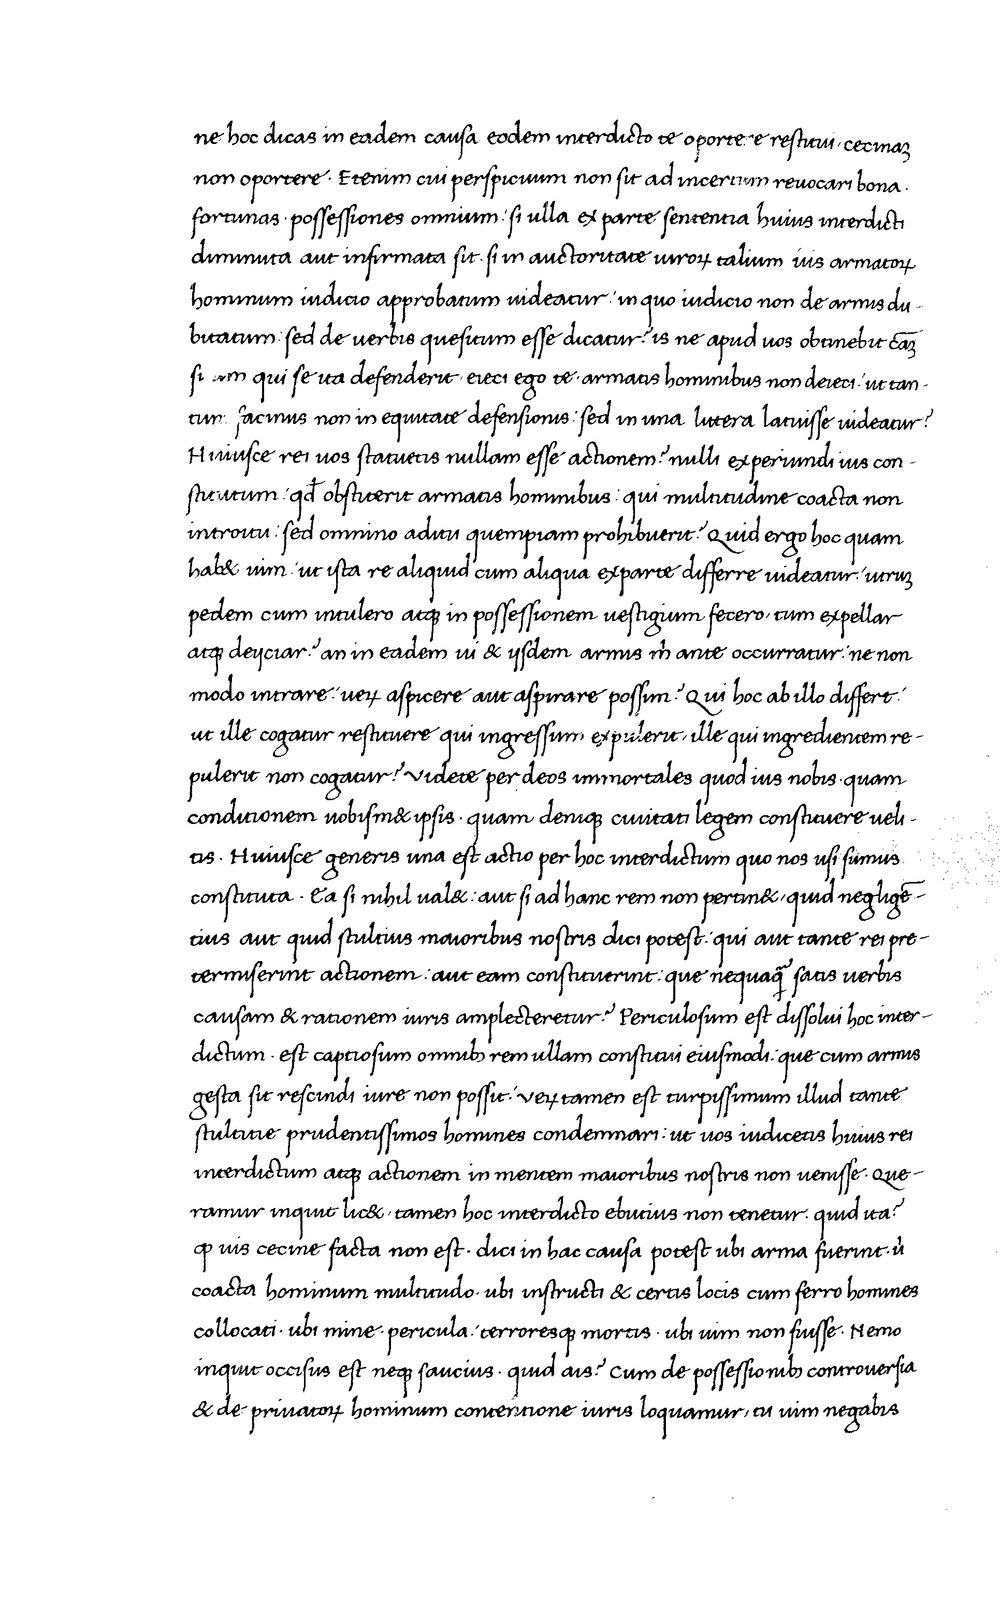 ne hoc dicas in eadem causa eodem interdicto te oportere restitui, cecinaꝫ
non oportere. Etenim cui perspicuum non sit ad incertum reuocari bona.
fortunas. possessiones omnium: si ulla ex parte sententia huius interdicti
diminuta aut infirmata sit. si in auctoritate uiroꝝ talium ius armatoꝝ
hominum iudicio approbatum uideatur: in quo iudicio non de armis du-
bitatum: sed de uerbis quesitum esse dicatur? is ne apud uos obtinebit cãꝫ
si qui se ita defenderit. eieci ego te. armatis hominibus non deieci: ut tan-
tum facinus non in equitate defensionis: sed in una littera latuisse uideatur?
Huiusce rei uos statuetis nullam esse actionem? nulli experiundi ius con-
stitutum: qđ obstiterit armatis hominibus: qui multitudine coacta non
introitu: sed omnino aditu quempiam prohibuerit? Quid ergo hoc quam
hab& uim: ut ista re aliquid cum aliqua exparte differre uideatur: utruꝫ
pedem cum intulero atqꝫ in possessionem uestigium fecero, tum expellar
atqꝫ deijciar? an in eadem ui & ijsdem armis m̃ ante occurratur: ne non
modo intrare: ueꝝ aspicere aut aspirare possim? Qui hoc ab illo differt:
ut ille cogatur restituere qui ingressum expulerit, ille qui ingredientem re-
pulerit non cogatur? Videte per deos immortales quod ius nobis. quam
conditionem uobism& ipsis. quam deniqꝫ ciuitati legem constituere ueli-
tis. Huiusce generis una est actio per hoc interdictum quo nos usi sumus
constituta. Ea si nihil ual&: aut si ad hanc rem non pertin&, quid negligē-
tius aut quid stultius maioribus nostris dici potest: qui aut tante rei pre-
termiserint actionem: aut eam constituerint: que nequaꝙ̃ satis uerbis
causam & rationem iuris amplecteretur? Periculosum est dissolui hoc inter-
dictum. est captiosum omnibꝫ rem ullam constitui eiusmodi: que cum armis
gesta sit rescindi iure non possit: Veꝝtamen est turpissimum illud tante
stultitie prudentissimos homines condemnari: ut uos iudicetis huius rei
interdictum atqꝫ actionem in mentem maioribus nostris non uenisse. Que-
ramur inquit lic&, tamen hoc interdicto ebutius non tenetur. quid ita?
ꝙ uis cecine facta non est. dici in hac causa potest ubi arma fuerint. ů
coacta hominum multitudo. ubi instructi & certis locis cum ferro homines
collocati. ubi mine. pericula. terroresqꝫ mortis. ubi uim non fuisse. Nemo
inquit occisus est neqꝫ saucius. quid ais? Cum de possessionibꝫ controuersia
& de priuatoꝝ hominum contentione iuris loquamur, tu uim negabis